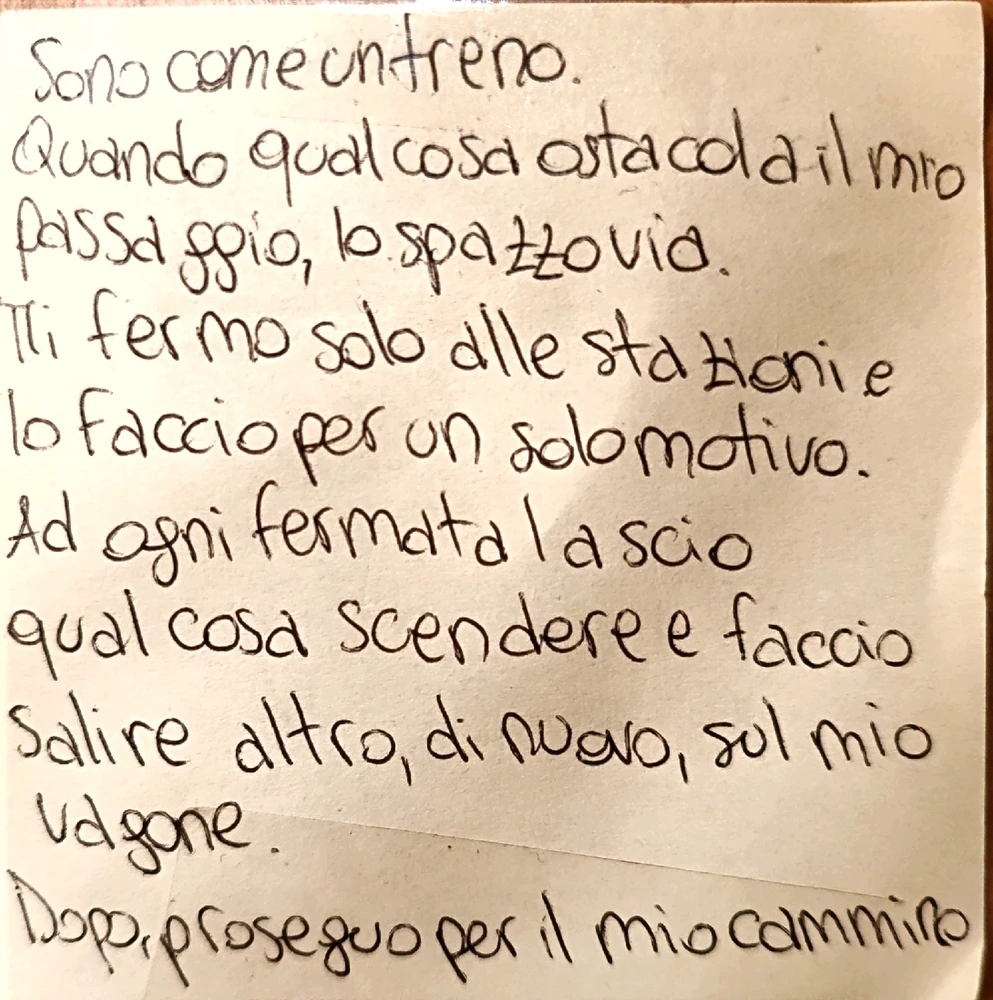 Sono come un treno.
Quando qualcosa ostacola il mio
passaggio, lo spazzo via.
Mi fermo solo alle stazioni e
lo faccio per un solo motivo.
Ad ogni fermata lascio
qualcosa scendere e faccio
salire altro, di nuovo, sul mio
vagone.
Dopo, proseguo per il mio cammino